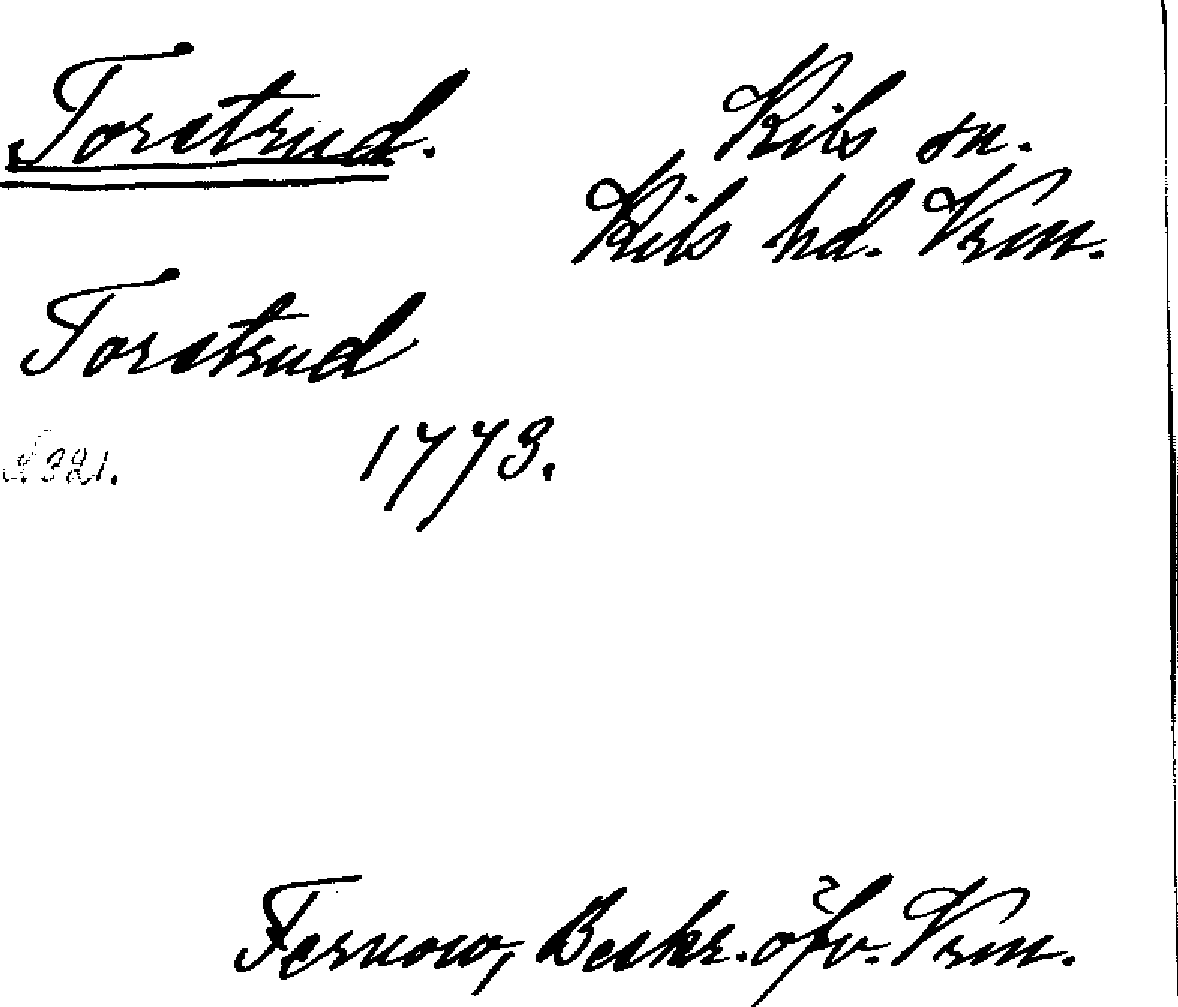 Torstrud.
Kils sn.
Kils hd. Vrm.
Torstrud
S. 321. 1773.
Fernow, Beskr. öfv. Vrm.